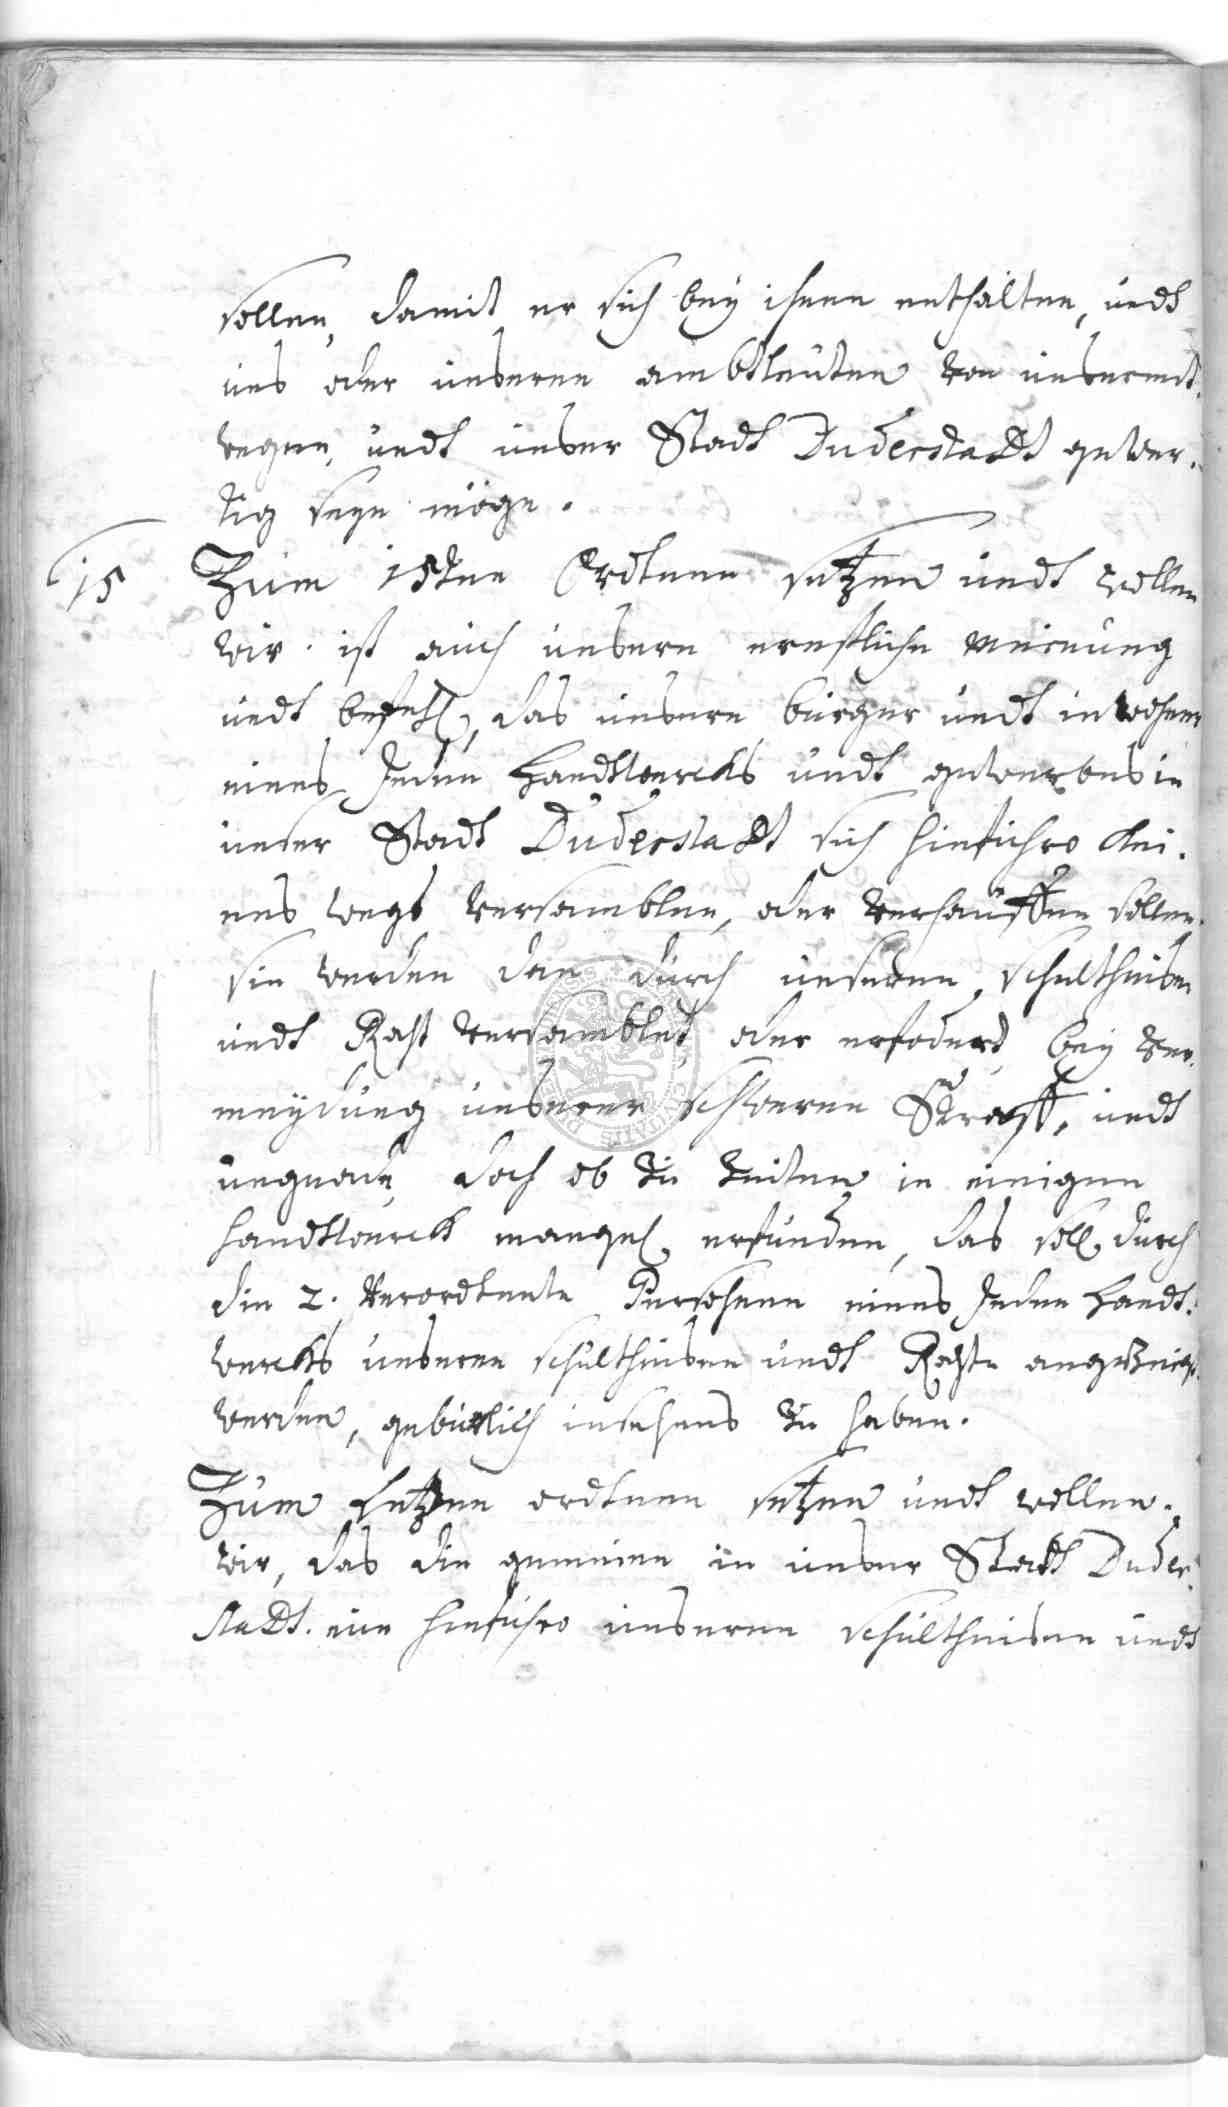 sollen, damit er sich bey ihnen enthalten, undt
uns oder unseren ambtleuten von unsernt.
wegen, undt unser Stadt Duderstadt gewer.
tig seyn möge.
15 Zum 15ten Ordtnen setzen undt wollen
wir. ist auch unsere ernstliche meinung
undt befehl, das unsere burger undt inwohner
eines Jeden Handtwercks undt gewerbes in
unser Stadt Duderstadt sich hinfuhro kei.
nes wegs versamblen, oder verhauffen sollen.
sie werden dan durch unseren schultheisen
undt Raht versamblet, oder erfodert bey ver.
meydung unserer schweren Straff, undt
ungnade, doch ob zu zeiten in einigen
handtwerck mangel erfunden, das soll durch
die 2. verordtente Persohnen eines Jeden Handt.
wercks unseren schultheisen undt Rahte angezeigt
werden, geburlich insehens zu haben.
Zum Letzen ordtnen setzen undt wollen.
wir, das die gemeine in unser Stadt Duder.
stadt. nun hinfuhro unseren schultheisen undt